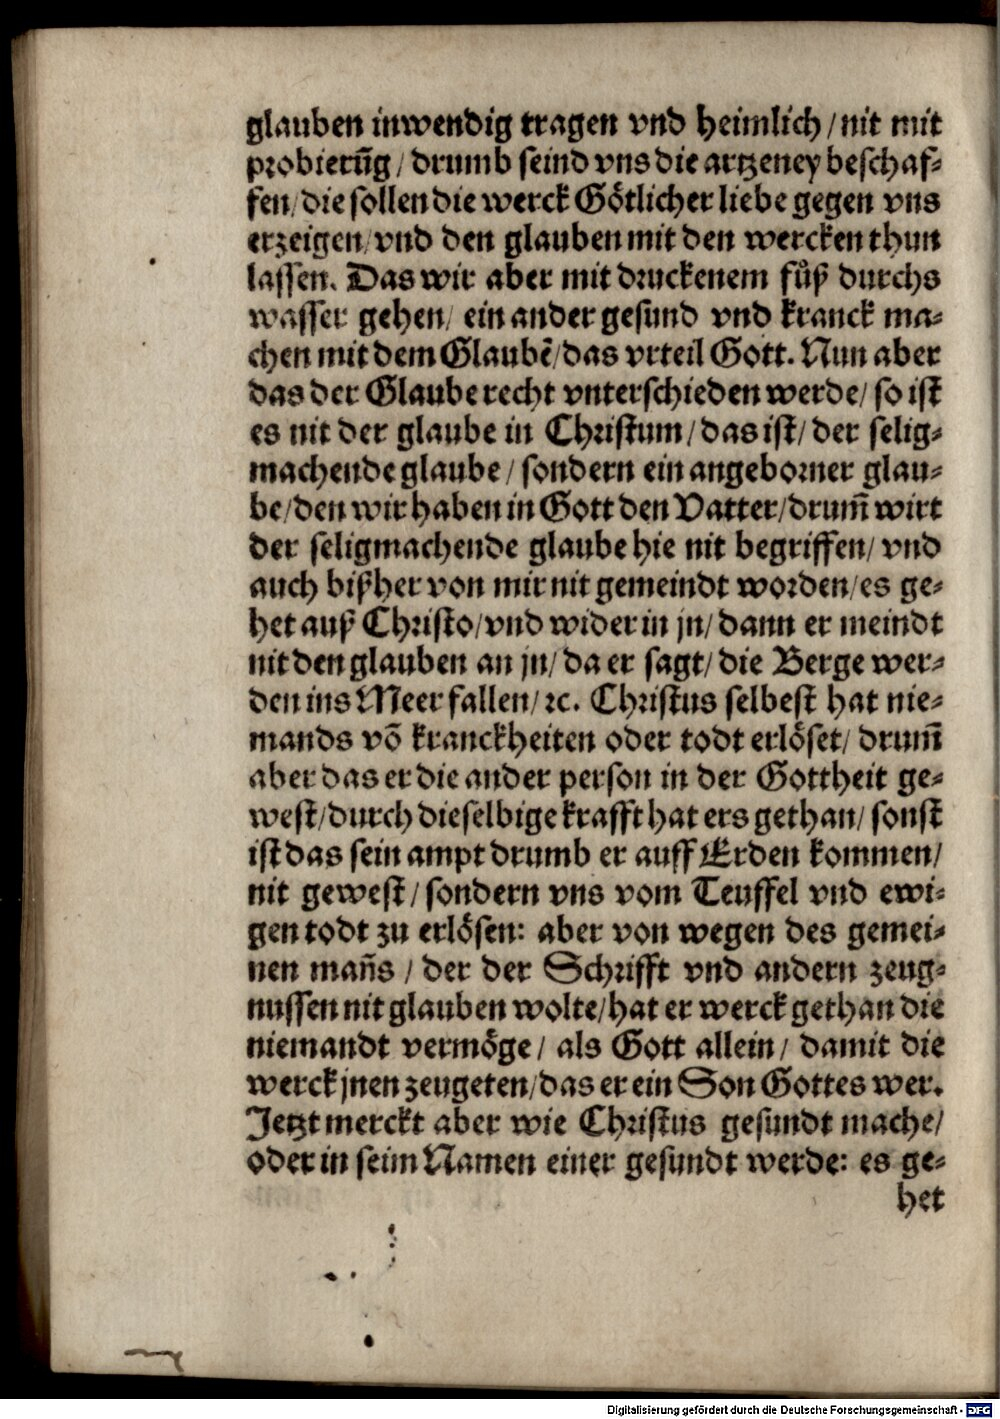 glauben inwendig tragen vnd heimlich / nit mit
probierũg / drumb seind vns die artzeney beschaf⸗
fen / die sollen die werck Götlicher liebe gegen vns
erzeigen / vnd den glauben mit den wercken thun
lassen. Das wir aber mit druckenem fůß durchs
wasser gehen / ein ander gesund vnd kranck ma⸗
chen mit dem Glaubẽ / das vrteil Gott. Nun aber
das der Glaube recht vnterschieden werde / so ist
es nit der glaube in Christum / das ist / der selig⸗
machende glaube / sondern ein angeborner glau⸗
be / den wir haben in Gott den Vatter / drum̃ wirt
der seligmachende glaube hie nit begriffen / vnd
auch bißher von mir nit gemeindt worden / es ge⸗
het auß Christo / vnd wider in jn / dann er meindt
nit den glauben an jn / da er sagt / die Berge wer⸗
den ins Meer fallen / ꝛc. Christus selbest hat nie⸗
mands võ kranckheiten oder todt erlöset / drum̃
aber das er die ander person in der Gottheit ge⸗
west / durch dieselbige krafft hat ers gethan / sonst
ist das sein ampt drumb er auff Erden kommen /
nit gewest / sondern vns vom Teuffel vnd ewi⸗
gen todt zu erlösen: aber von wegen des gemei⸗
nen mañs / der der Schrifft vnd andern zeug⸗
nussen nit glauben wolte / hat er werck gethan die
niemandt vermöge / als Gott allein / damit die
werck jnen zeugeten / das er ein Son Gottes wer.
Jetzt merckt aber wie Christus gesundt mache /
oder in seim Namen einer gesundt werde: es ge⸗
het
Digitalisierung gefördert durch die Deutsche Forschungsgemeinschaft - DFG